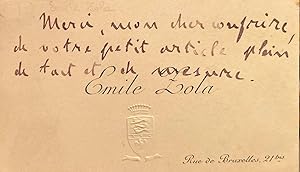 Merci, mon cher confrère,
de votre petit article plein
de tact et de mesure.
Emile Zola
Rue de Bruxelles, 21bis